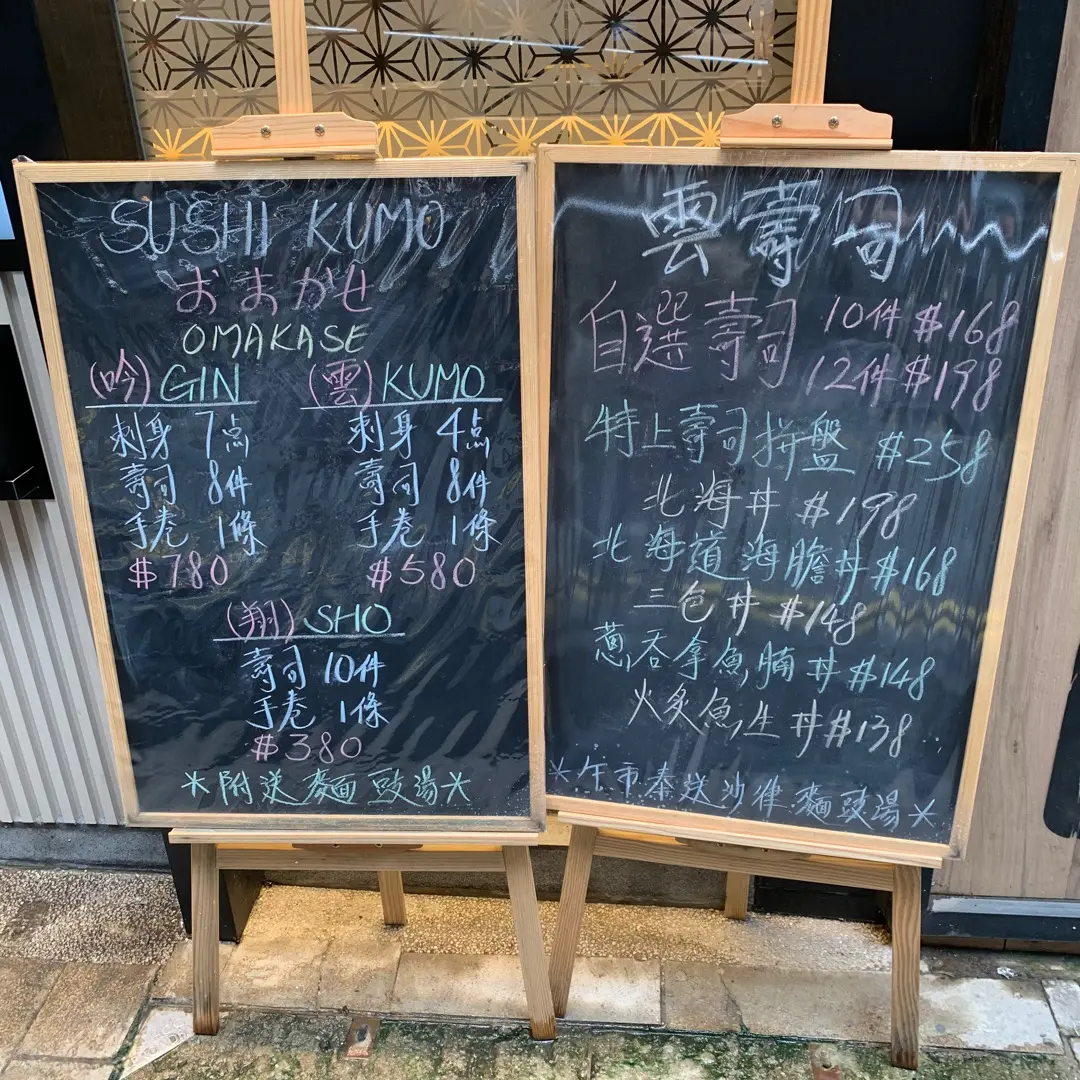 SUSHI KUMO
おまかせ
OMAKASE
(吟) GIN
刺身 7点
壽司 8件
手卷 1條
$780
(雲) KUMO
刺身 4点
壽司 8件
手卷 1條
$580
(翔) SHO
壽司 10件
手卷 1條
$380
*附送麵豉湯*
雲壽司
自選壽司 10件 $168
12件 $198
特上壽司拼盤 $258
北海丼 $198
北海道海膽丼 $168
三色丼 $148
蔥吞拿魚腩丼 $148
火炙魚生丼 $138
*午市奉送沙律麵豉湯*